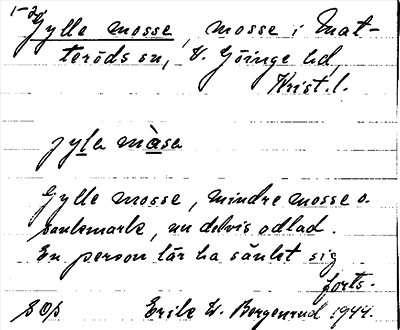 1-2
Gylle mosse, mosse i Mat-
teröds sn, V. Göinge hd,
Krist. l.
jyla màsa
Gylle mosse, mindre mosse o.
sankmark, nu delvis odlad.
En person lär ha sänkt sig
forts.
sop Erik W. Bergenrud 1944.